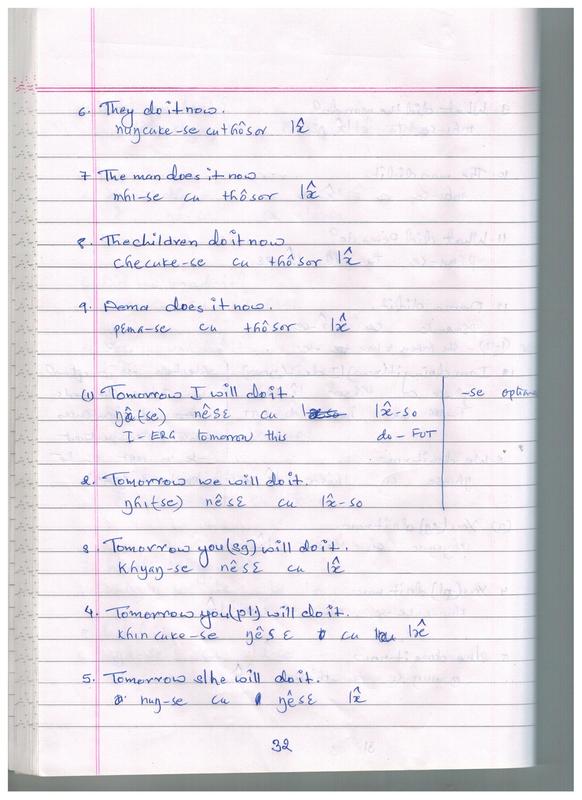 6. They do it now.
nuŋcuke-se cu thôsor lx̂
7 The man does it now
mhi-se cu thôsor lx̂
8. The children do it now
checuke-se cu thôsor lx̂
9. Pema does it now.
pema-se cu thôsor lx̂
(1) Tomorrow I will do it. -se option
ŋâ(se) nêsɛ cu lx̂-so
I-ERG tomorrow this do-FUT
2. Tomorrow we will do it.
ŋhi(se) nêsɛ cu lx̂-so
3. Tomorrow you(sg) will do it.
Khyaŋ-se nêsɛ cu lx̂
4. Tomorrow you(pl) will do it.
khin cuke-se ŋêsɛ cu lx̂
5. Tomorrow s/he will do it.
nuŋ-se cu ŋêsɛ lx̂
32